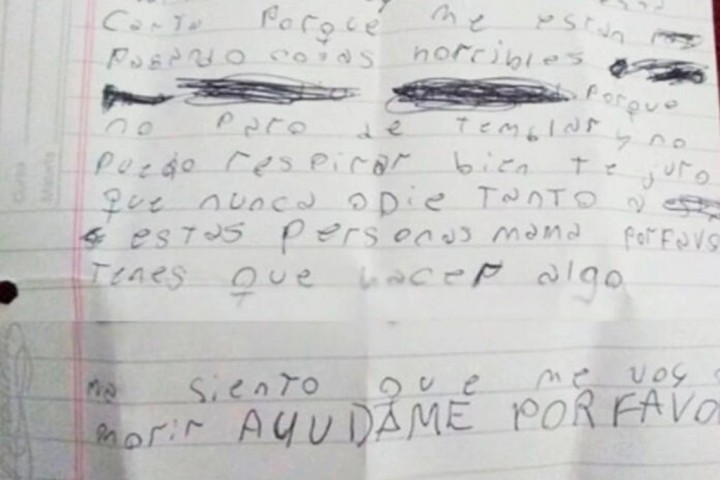 Carta Porque me están
Pasando cosas horribles
Porque
no Paro de Temblar y no
Puedo respirar bien Te juro
que nunca odie TANTO a
estas Personas mama porfavo
Tenes que hacer algo
me siento que me voy a
morir AYUDAME PORFAVO